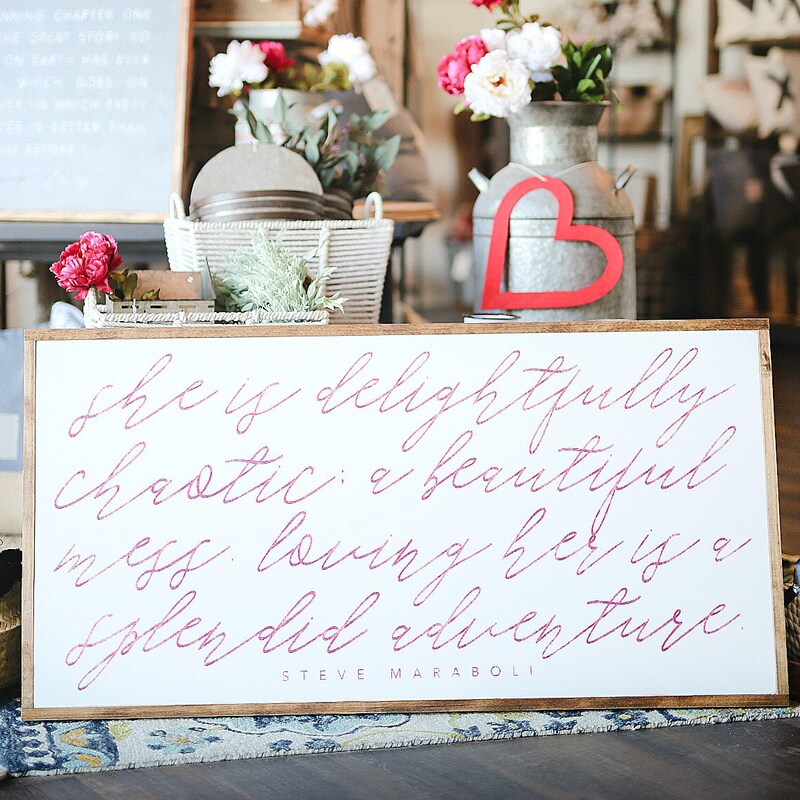 NNING CHAPTER ONE
THE GREAT STORY NO
ON EARTH HAS EVER
WHICH GOES ON
VER: IN WHICH EVERY
TER IS BETTER THAN
ONE BEFORE
she is delightfully
chaotic; a beautiful
mess. loving her is a
splendid adventure.
STEVE MARABOLI